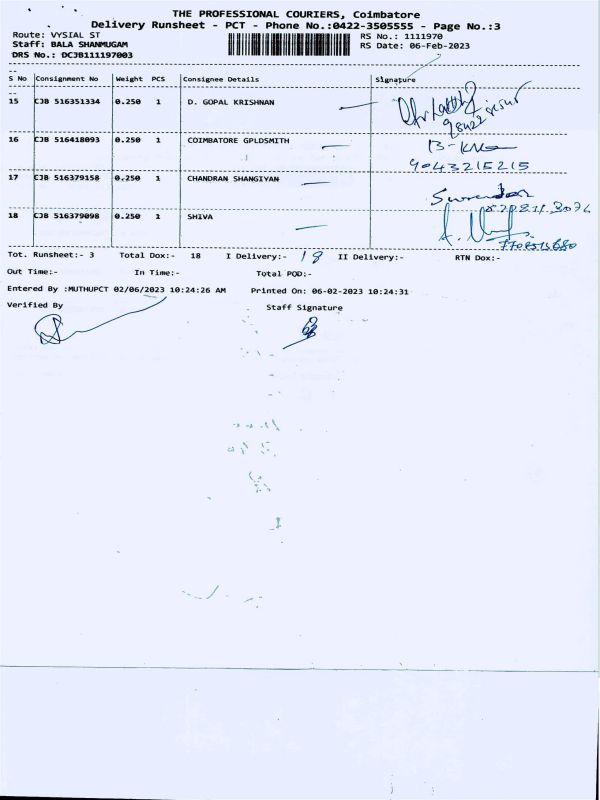 THE PROFESSIONAL COURIERS, Coimbatore
Delivery Runsheet - PCT - Phone No.:0422-3505555 - Page No.:3
Route: VYSIAL ST RS No.: 1111970
Staff: BALA SHANMUGAM RS Date: 06-Feb-2023
DRS No.: DCJB111197003
S No Consignment No Weight PCS Consignee Details Signature
15 CJB 516351334 0.250 1 D. GOPAL KRISHNAN
16 CJB 516418093 0.250 1 COIMBATORE GPLDSMITH
9043215215
17 CJB 516379158 0.250 1 CHANDRAN SHANGIYAN
18 CJB 516379098 0.250 1 SHIVA
Tot. Runsheet:- 3 Total Dox:- 18 I Delivery:- 18 II Delivery:- RTN Dox:-
Out Time:- In Time:- Total POD:-
Entered By :MUTHUPCT 02/06/2023 10:24:26 AM Printed On: 06-02-2023 10:24:31
Verified By Staff Signature